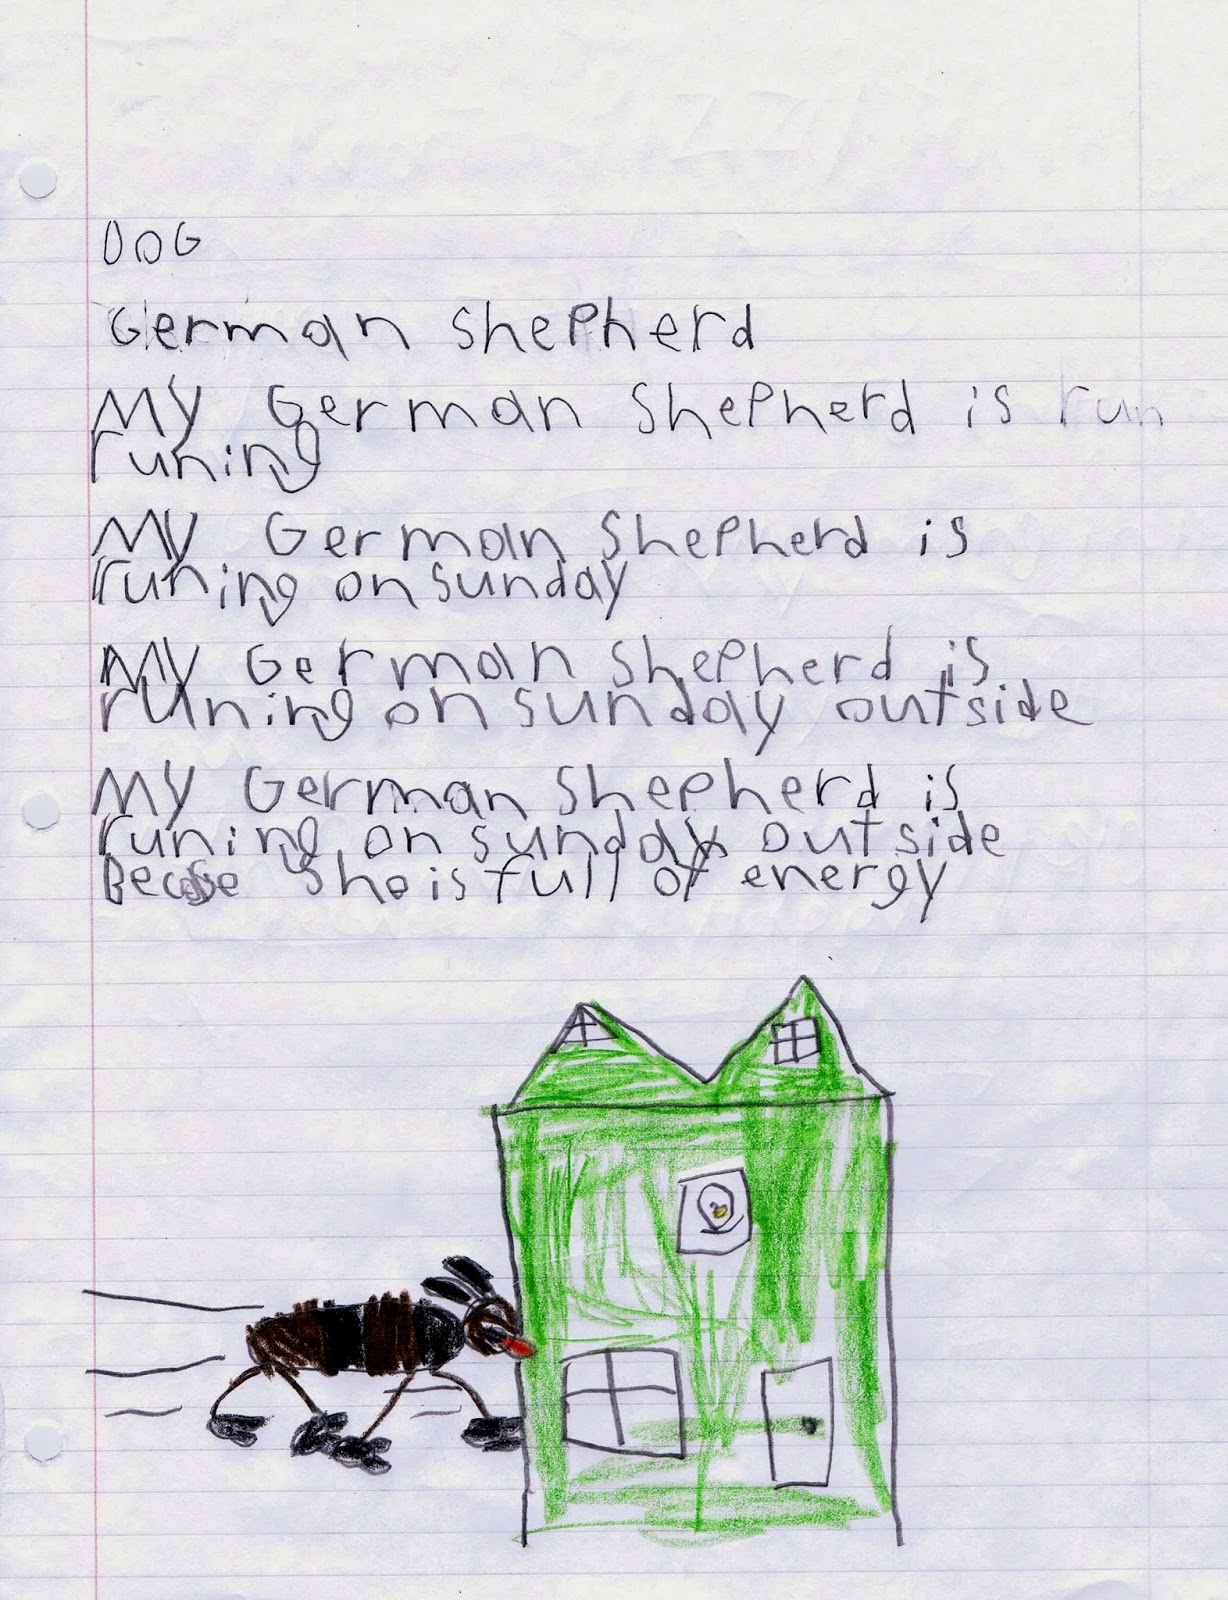 DOG
German shepherd
My German shepherd is run
runing
My German shepherd is
runing on sunday
My German shepherd is
runing on sunday outside
My German shepherd is
runing on sunday outside
Becose she is full of energy